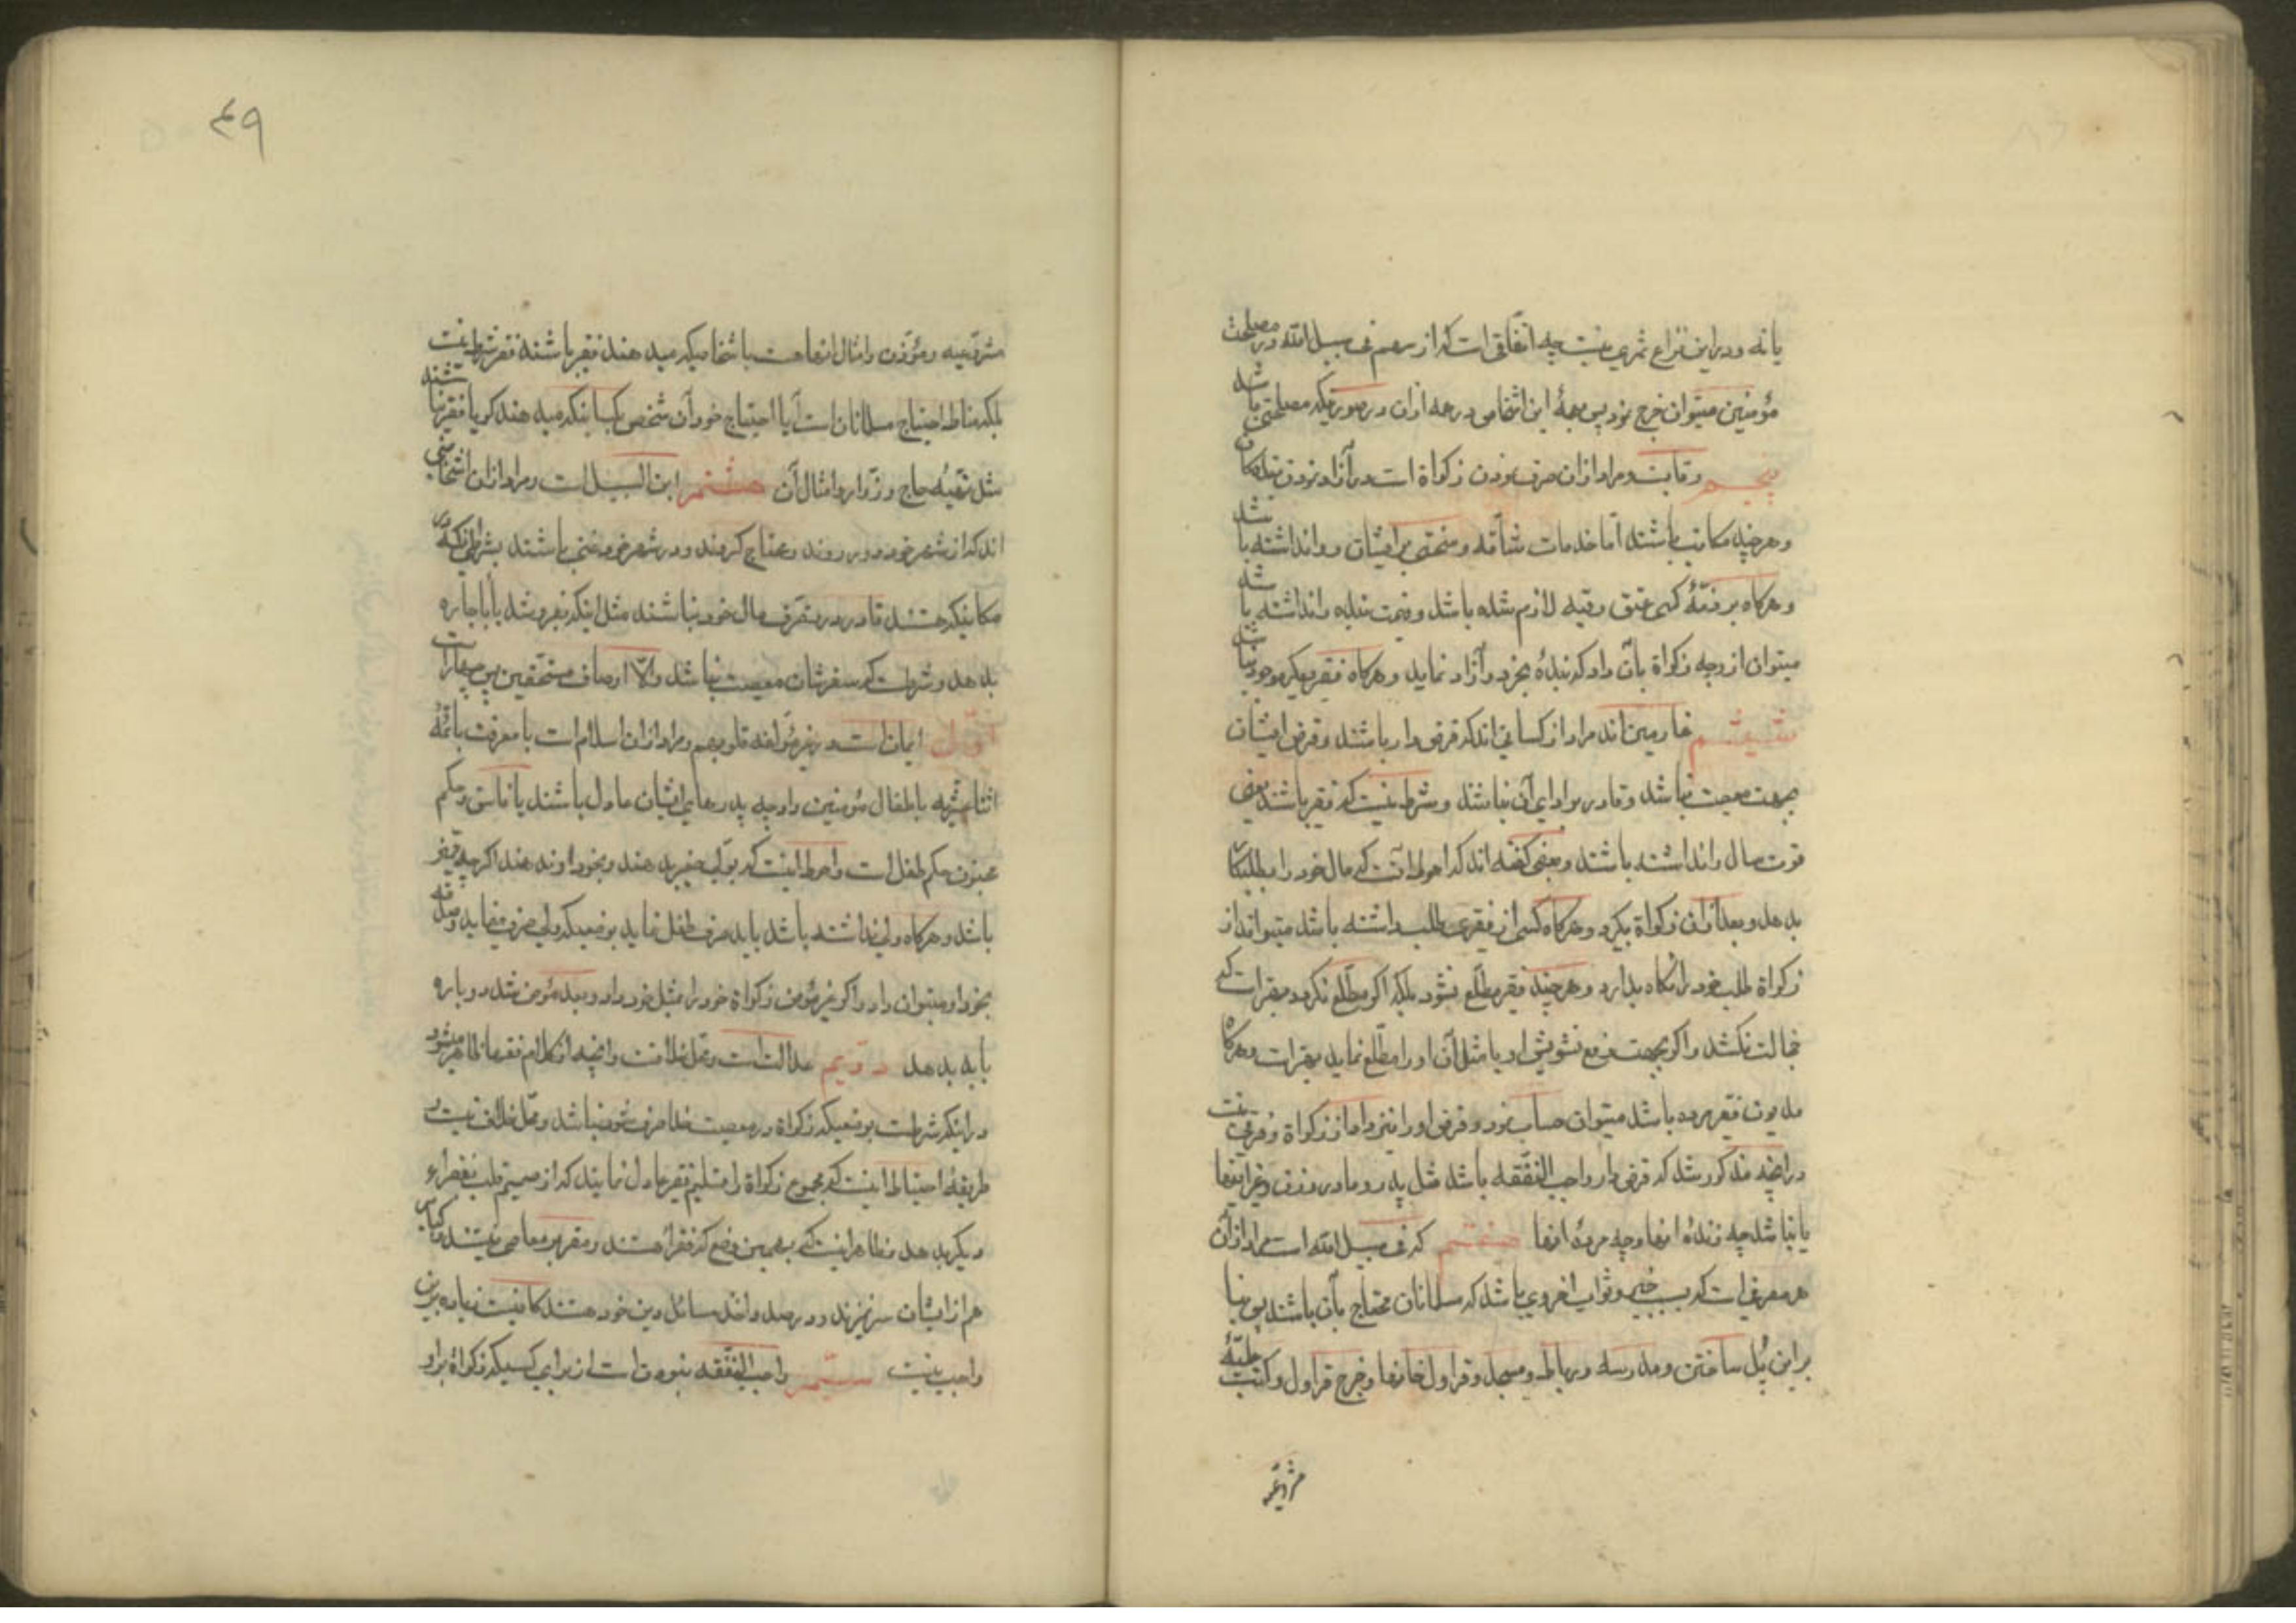 یا نه و در این نزاع ثمری نیست چه اتفاقی است که از سهم فی سبیل الله در مصلحت
مؤمنین میتوان خرج نمود پس همهٔ این اشخاص در همه ازان در صورتیکه مصلحتی باشد
پنجم رقابست و مراد ازان صرف نمودن زکواة است در آزاد نمودن بندهکان
و هرچند مکاتب باشند اما خدمات شاقه و سختی بر ایشان روا نداشته باشد
و هرکاه بر ذمّهٔ کسی عتق رقبه لازم شده باشد و قیمت بنده را نداشته باشد
میتوان از وجه زکواة بآن داد که بندهٔ بخرد و آزاد نماید و هرکاه فقیر دیکر موجود نباشد
ششم غارمین اند مراد از کسانی اند که قرض دار باشند و قرض ایشان
بجهت معصیت نباشد و قادر بر ادای آن نباشند و شرط نیست که فقیر باشند یعنی
قوت سال را نداشته باشند و بعضی کفته اند که احوط آنست که مال خود را بطلبکار
بدهد و بعد ازان زکواة بکیرد و هرکاه کسی از فقیری طلب داشته باشد میتواند از
زکواة طلب خود را نکاه بدارد و هرچند فقیر مطّلع نشود بلکه اکر مطّلع نکردد بهتر است که
خجالت نکشد و اکر بجهت رفع تشویش او یا مثل آن او را مطّلع نماید بهتر است و هرکاه
مدیون فقیر مرده باشد میتوان حساب نمود و قرض او را نیز دادن از زکواة و فرقی نیست
در آنچه مذکور شد که قرض دار واجب النفقه باشد مثل پدر و مادر و زن و غیر اینها
یا نباشد چه زندهٔ انها و چه مردهٔ انها هفتم که فی سبیل الله است مراد ازان
هر مصرفی است که سبب خیر و ثواب اخروی باشد که مسلمانان محتاج بآن باشند پس بنا
بر این پُل ساختن و مدرسه و رباط و مسجد و قراول خانها و خرج قراول و کتب علمیّهٔ
شرعیّه
۴۹
شرعیه و مؤذن و امثال انها هست باشخاصیکه میدهند فقیر باشند فقر شرط نیست
بلکه مناط احتیاج مسلمانان است یا احتیاج خود آن شخص بکسانیکه میدهند کو یا فقیر نباشند
مثل تهیّهٔ حاج و زوّار و امثال آن هشتم ابن السبیل است و مراد ازان اشخاصی
اند که از شهر خود دور روند و محتاج کردند و در شهر خود غنی باشند بشرطی که در
مکانیکه هستند قادر بر تصرّف مال خود نباشند مثل اینکه بفروشد یا باجاره
بدهد و شرط است که سفرشان معصیت نباشد و الّا اوصاف مستحقین پس چهار است
اوّل ایمان است در غیر مؤلفه قلوبهم و مراد ازان اسلام است با معرفت بائمّهٔ
اثنا عشریه با اطفال مؤمنین و اکرچه پدرهای ایشان عادل باشند یا فاسق و حکم
مجنون حکم طفل است و احوط اینست که بولی صغیر بدهند و بخود او ندهند اکرچه فقیر
باشد و هرکاه ولی نداشته باشد باید صرف طفل نماید بوضعیکه ولی صرف مینماید
بخود او میتوان داد و اکر غیر مؤمن زکواة خود را بمثل خود داد و بعد مؤمن شد دوباره
باید بدهد دویّم عدالت است و محل خلافست و آنچه از کلام فقها ظاهر میشود
در اینکه شرط است بوضعیکه زکواة در معصیت خدا صرف نشود نباشد و محل خلاف نیست
طریقهٔ احتیاط اینست که مجموع زکواة را تسلیم فقیر عادل نمایند که از صمیم قلب بفقراء
دیکر بدهد و ظاهر اینست که بهمین وضع که فقراء هستند و مقرّ بر معاصی نیستند و کبایر
هم از ایشان سر نزند و در صدد اخذ مسائل دین خود هستند کافیست زیاده برین
واجب نیست سیّم واجب النفقه نبودن است از برای کسیکه زکواة براو